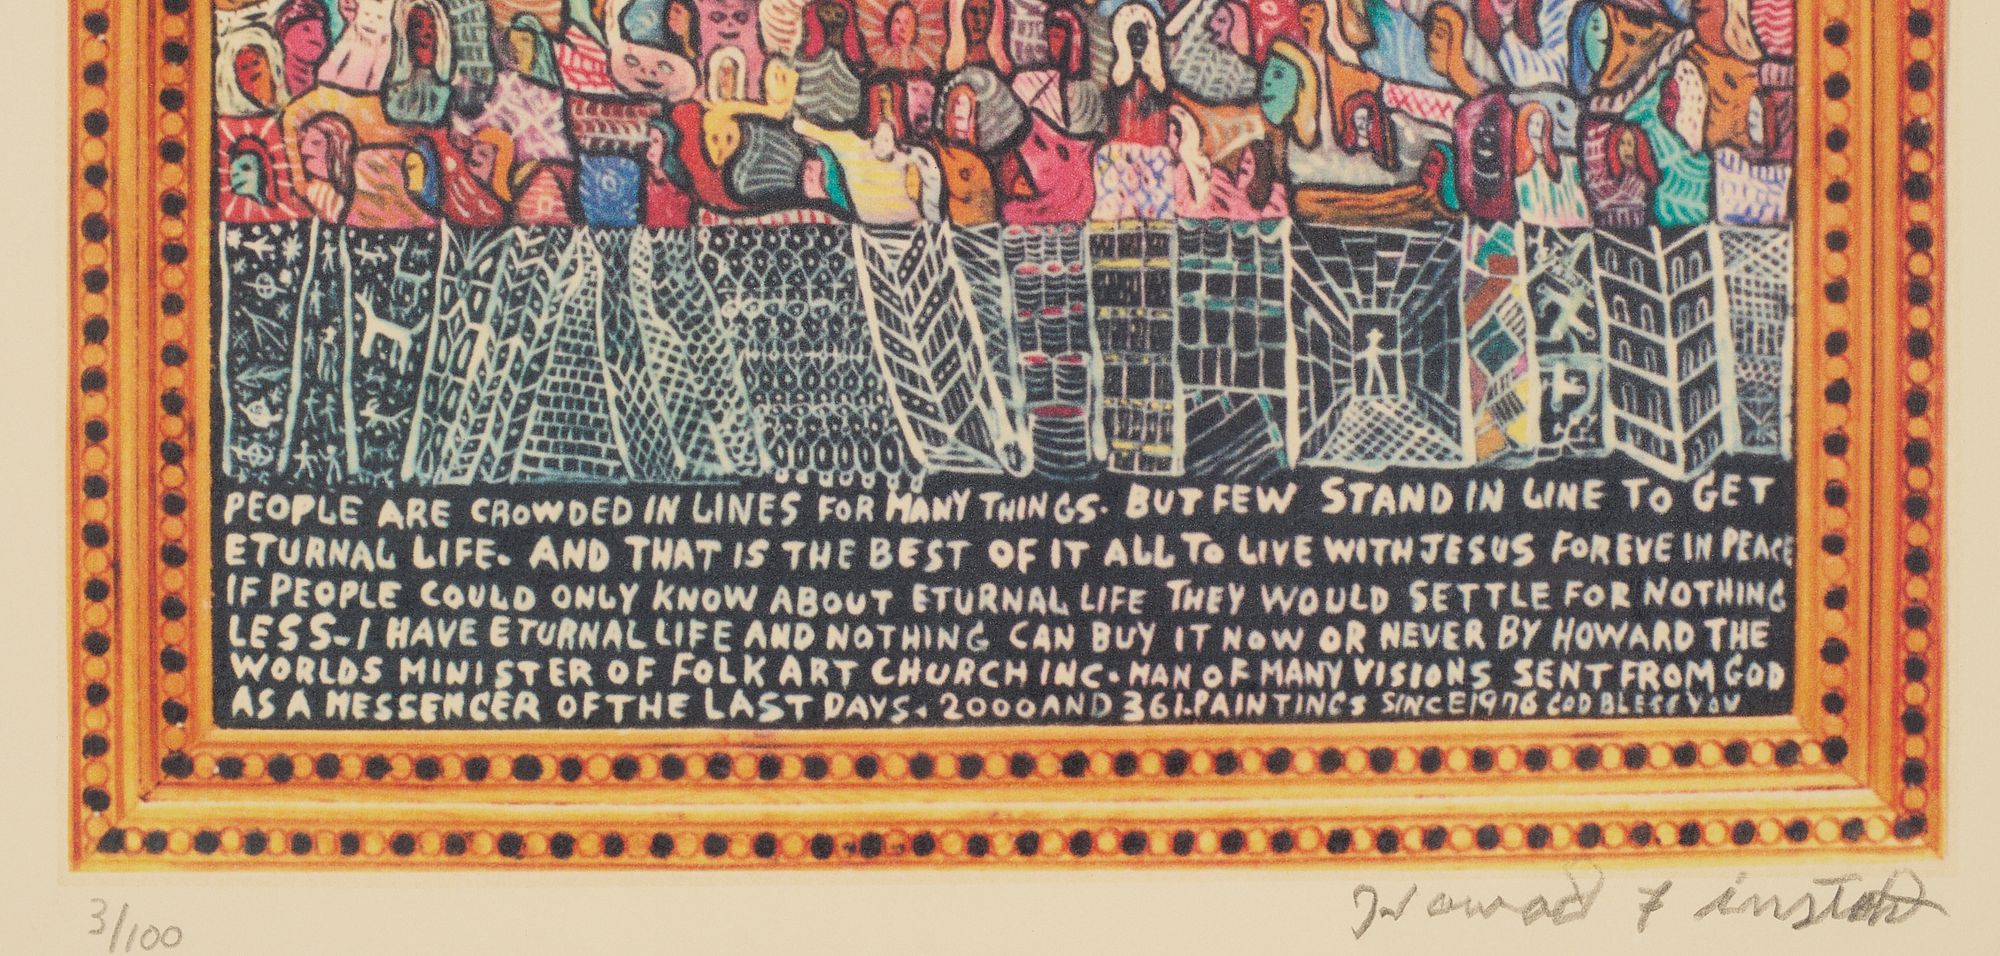 PEOPLE ARE CROWDED IN LINES FOR MANY THINGS. BUT FEW STAND IN LINE TO GET
ETURNAL LIFE. AND THAT IS THE BEST OF IT ALL TO LIVE WITH JESUS FOREVE IN PEACE
IF PEOPLE COULD ONLY KNOW ABOUT ETURNAL LIFE THEY WOULD SETTLE FOR NOTHING
LESS-I HAVE ETURNAL LIFE AND NOTHING CAN BUY IT NOW OR NEVER BY HOWARD THE
WORLDS MINISTER OF FOLK ART CHURCH INC. MAN OF MANY VISIONS SENT FROM GOD
AS A MESSENCER OF THE LAST DAYS. 2000 AND 361.PAINTINGS SINCE 1976 GOD BLESS YOU
3/100 Howard Finster